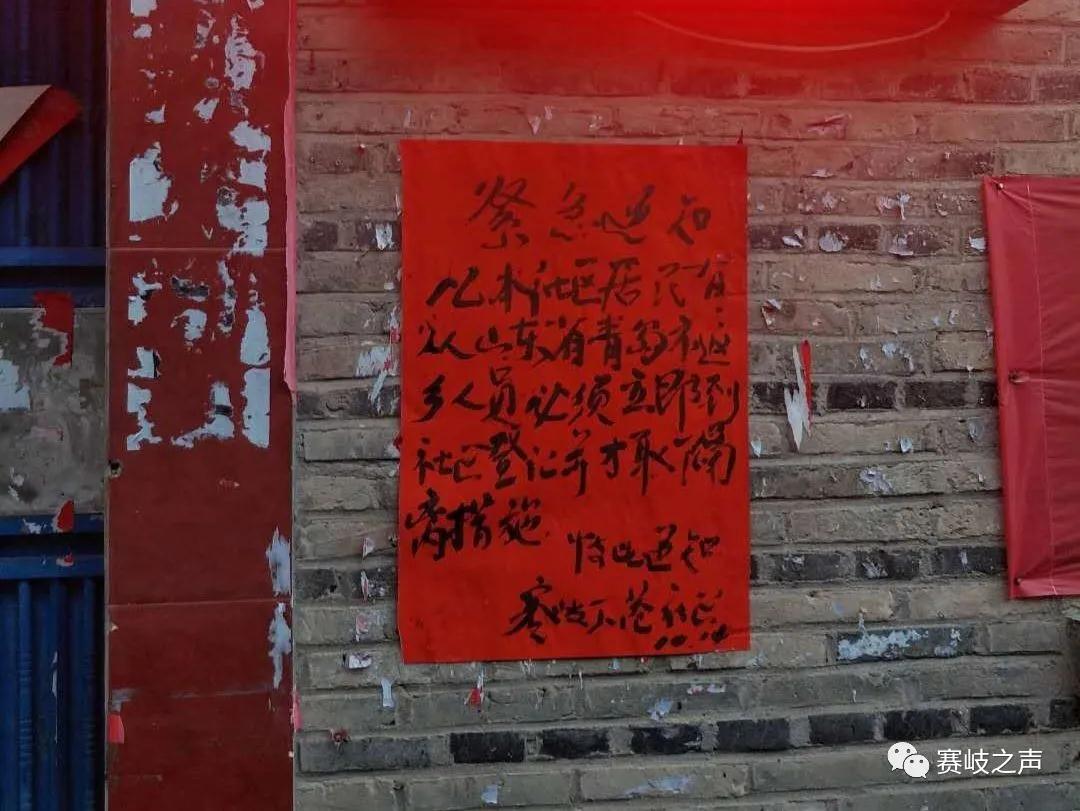 紧急通知
凡本社区居民有
从山东省青岛市返
乡人员必须立即到
社区登记并才取隔
离措施
特此通知
赛岐下苍社区
赛岐之声